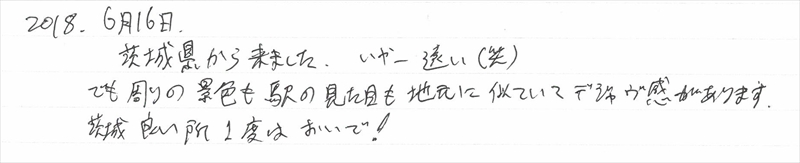 2018. 6月16日.
茨城県から来ました. いやー遠い(笑)
でも周りの景色も駅の見た目も地元に似ていてデジャヴ感があります.
茨城良い所1度はおいで!